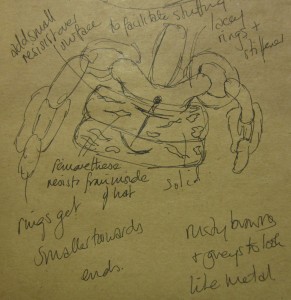 add small
resist over
surface
to facilitate
rings +
remove these
resists from inside
of hot
Solid
rings get
smaller towards
ends.
rusty browns
+ greys to look
like metal